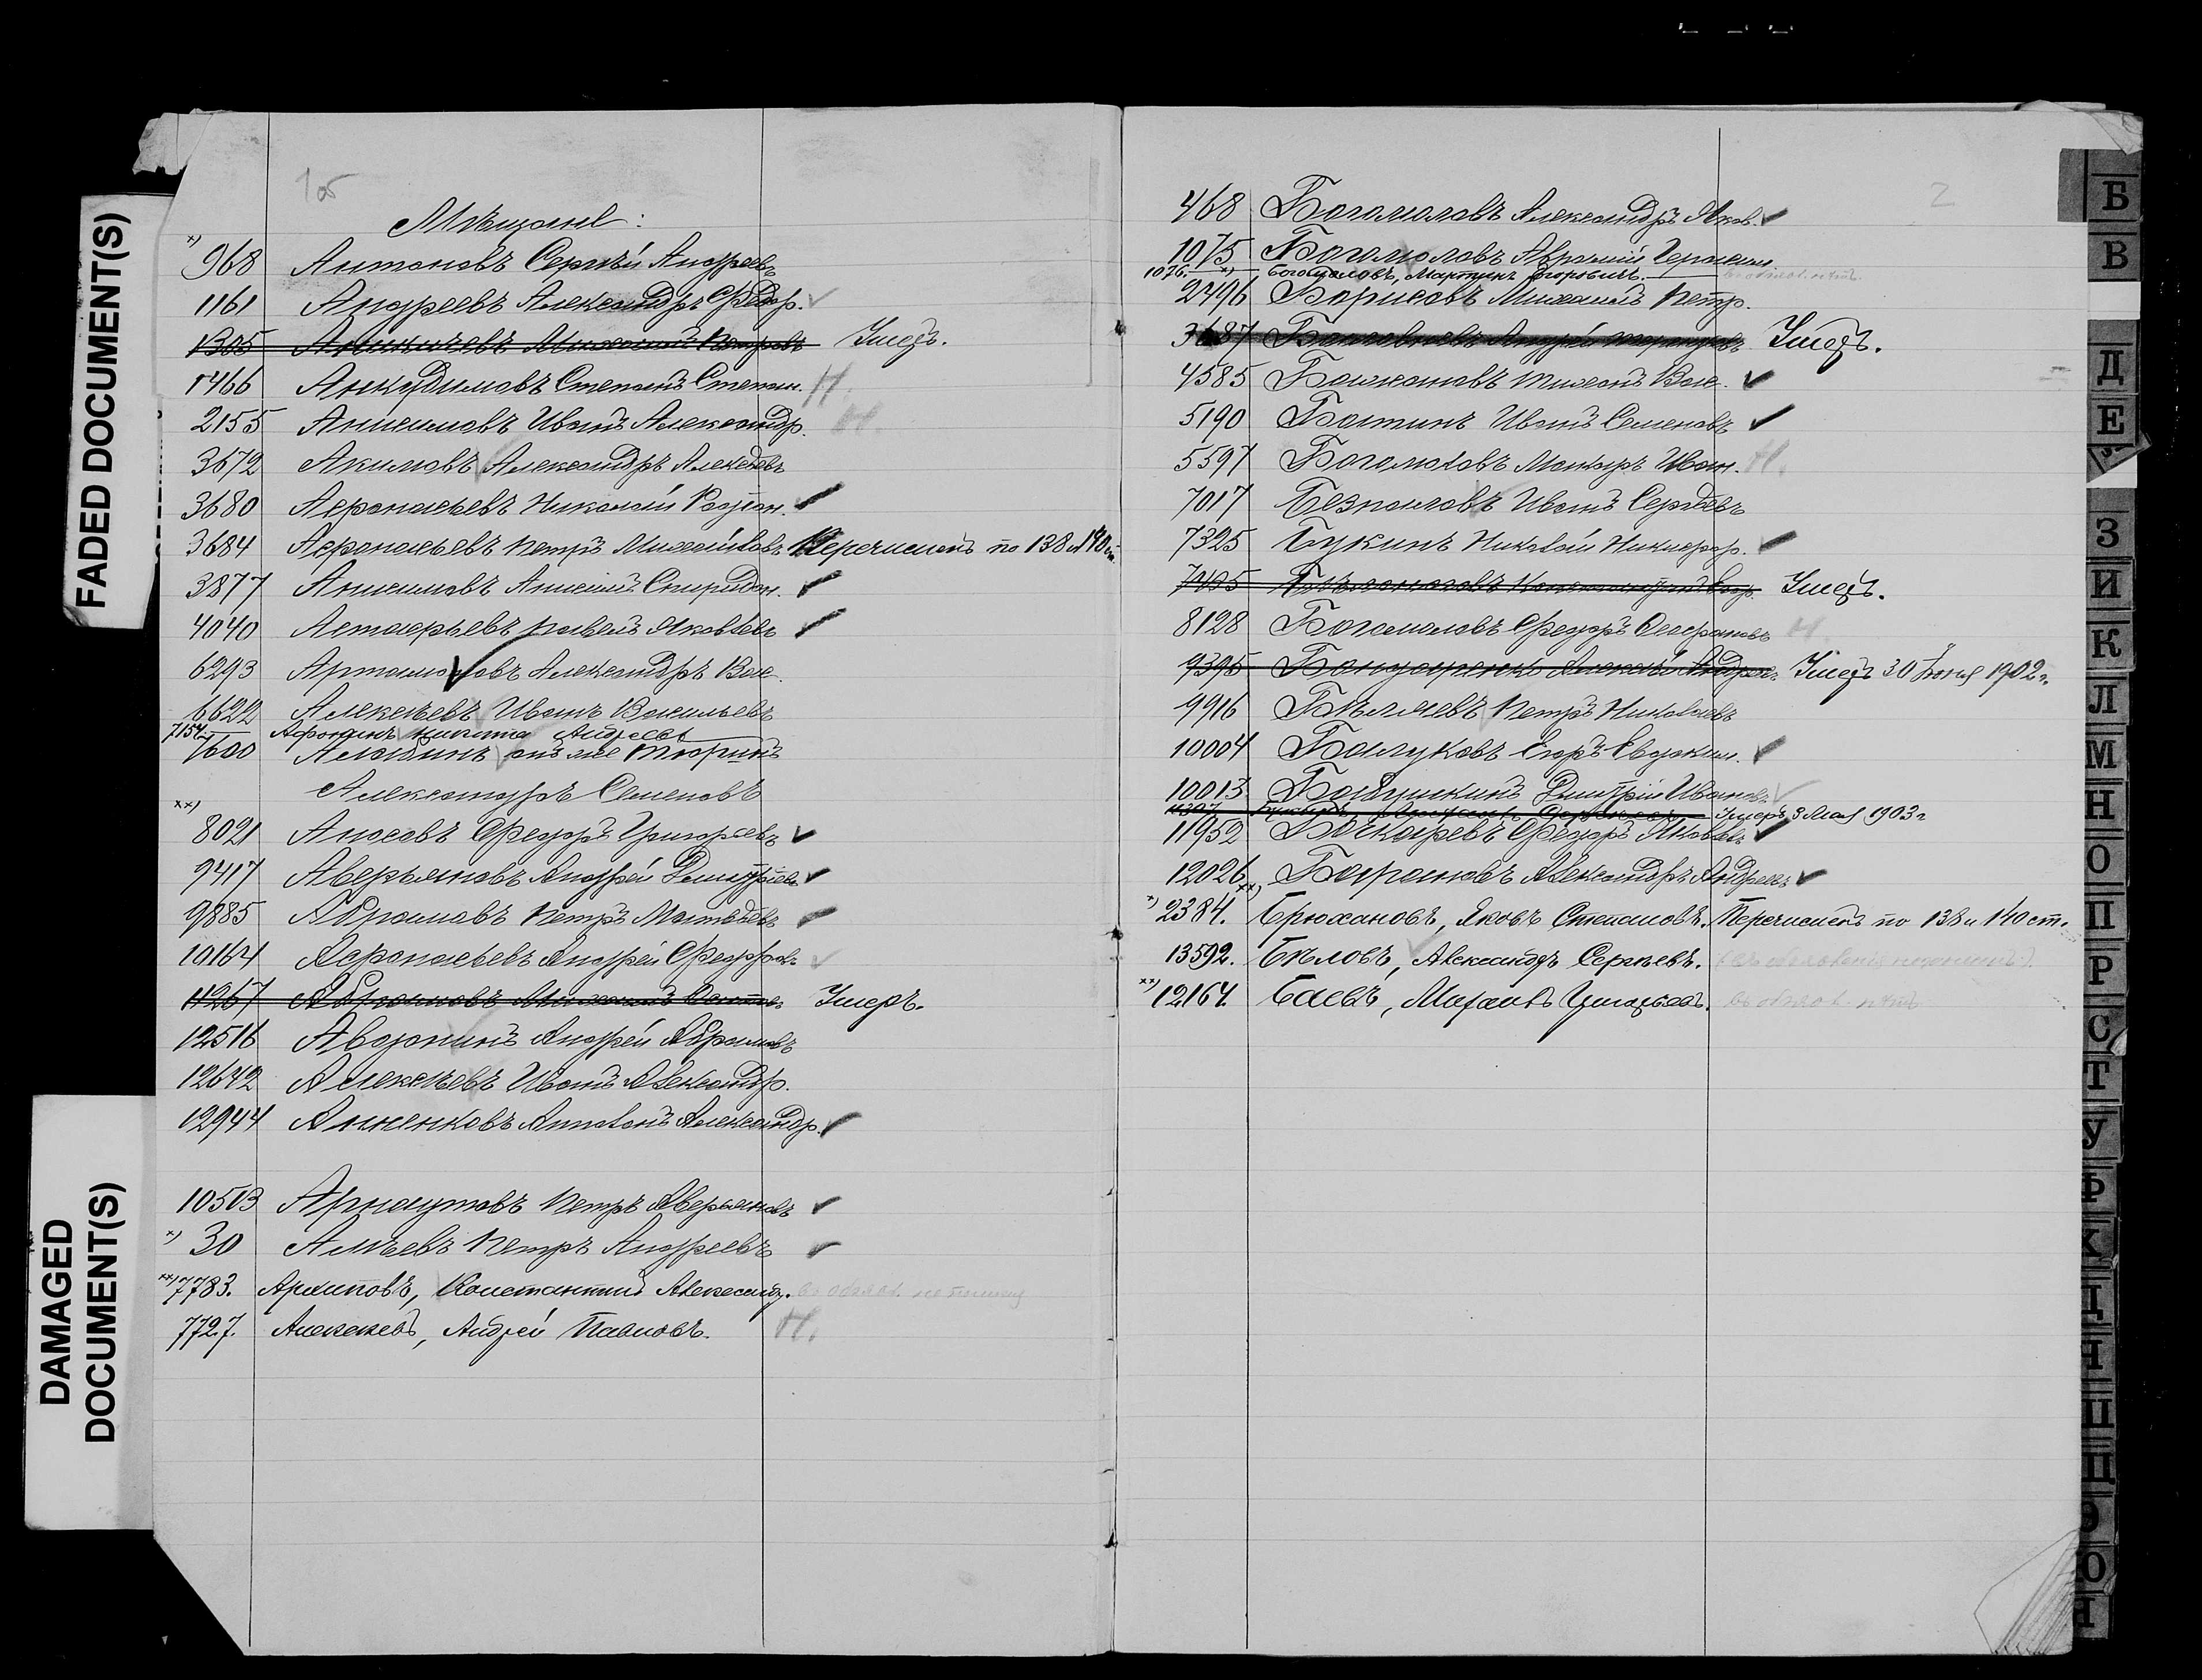 FADED DOCUMENT(S)
DAMAGED
DOCUMENT(S)
1об
Мѣщане:
x) 968 Антоновъ Сергѣй Андреевъ
1161 Андреевъ Александръ Ѳедор.
1305 Аникичевъ Михаилъ Петровъ Умеръ.
1466 Анкудимовъ Степанъ Степан. Н.
2155 Анисимовъ Иванъ Александр. Н.
3672 Акимовъ Александръ Алексѣевъ
3680 Афонасьевъ Николай Родіон.
3684 Афонасьевъ Петръ Михайловъ Перечисленъ по 138 и 140 ст.
3877 Анисимовъ Анисимъ Спиридон.
4040 Астафьевъ Павелъ Яковлевъ
6293 Артамоновъ Александръ Вас.
6622 Алексѣевъ Иванъ Васильевъ
7154. Афонинъ Никита Андреевъ
7600 Алабинъ онъ же Тюринъ
Александръ Семеновъ
xx)
8021 Аносовъ Ѳедоръ Григорьевъ
9417 Аверьяновъ Андрей Дмитріевъ
9885 Абрамовъ Петръ Матвѣевъ
10164 Афонасьевъ Андрей Ѳедоровъ
11267 Абрамовъ Михаилъ Умеръ.
12516 Авдонинъ Андрей Абрамовъ
12642 Алексѣевъ Иванъ Александр.
12944 Аненковъ Антонъ Александр.
10503 Арнаутовъ Петръ Аверьяновъ
x) 30 Алѣевъ Петръ Андреевъ
xx) 7783. Архиповъ, Константинъ Александр.
7727. Алексѣевъ, Андрей Павловъ. Н.
2
468 Богомоловъ Александръ Яков.
1075 Богомоловъ Аврамій Герасим.
1076. x) Богомоловъ, Мартинъ Егоровичъ.
2496 Борисовъ Михаилъ Петр.
3687 Андрей Умеръ.
4585 Баженовъ Михаилъ Вас.
5190 Батинъ Иванъ Семеновъ
5597 Боголюбовъ Иван. Н.
7017 Безпаловъ Иванъ Сергѣевъ
7325 Букинъ Николай Никифор.
7405 Умеръ.
8128 Богомоловъ Ѳедоръ Н.
9395 Бондаренко Алексѣй Андрее. Умеръ 30 Іюня 1902 г.
9916 Бѣляевъ Петръ Николаевъ
10004 Балуковъ Егоръ Евдоким.
10013 Бабушкинъ Дмитрій Ивановъ
Умеръ 3 Мая 1903 г
11952 Бочкаревъ Ѳедоръ Яковлевъ
12026 Барановъ Александръ Андреевъ
x) 2384. xx) Брюхановъ, Яковъ Степановъ. Перечисленъ по 138 и 140 ст.
13592. Бѣловъ, Александръ Сергѣевъ.
xx) 12164. Баевъ,
Б
В
Д
Е
З
И
К
Л
М
Н
О
П
Р
С
Т
У
Ф